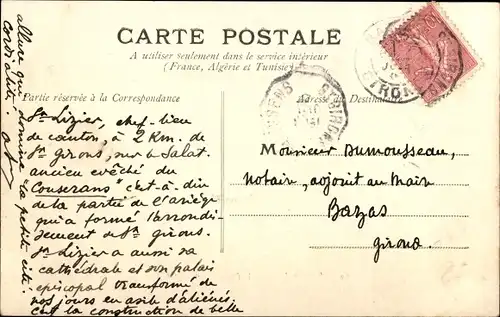 CARTE POSTALE
A utiliser seulement dans le service intérieur
(France, Algérie et Tunisie)
Partie réservée à la Correspondance
Adresse du Destinataire
St Lizier, chef-lieu
de canton, à 2 Km. de
St Girons, sur le Salat.
ancien évêché du
Couserans c'est-à-dire
de la partie de l'ariège
qui a formé l'arrondi-
ssement de St Girons.
St Lizier a aussi sa
cathédrale et son palais
episcopal transformé de
nos jours en asile d'aliénés.
C'est la construction de belle
allure qui domine la petite cité.
Cordialité.
Monsieur Dumousseau,
Notaire, adjoint au Maire
Bazas
Gironde